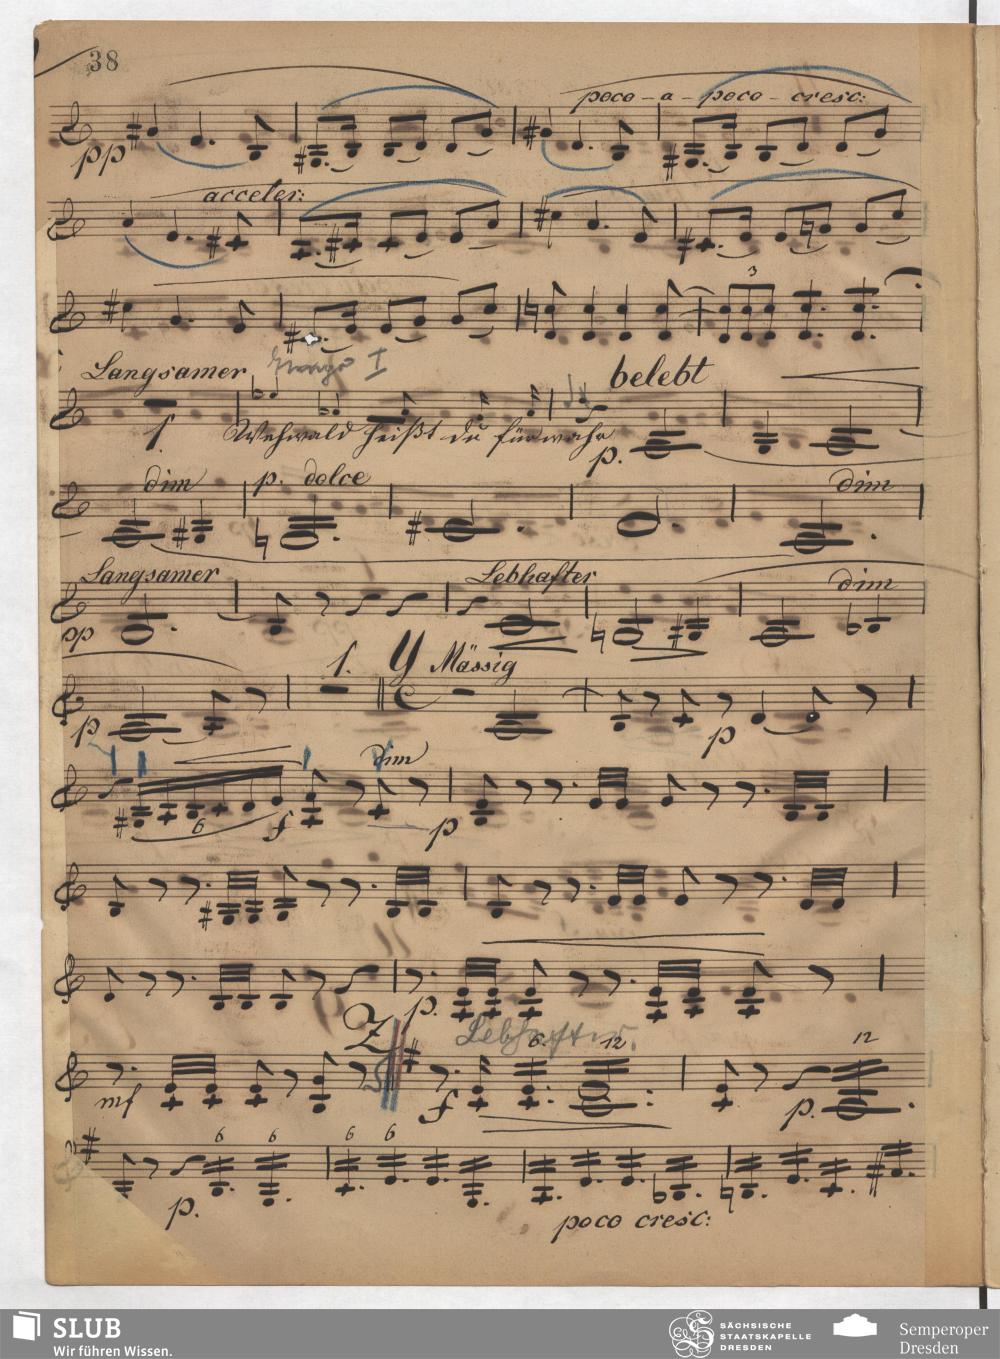 38
pp
poco - a - poco - cresc:
acceler:
3
Langsamer
I
belebt
1.
Wehwald heißt du fürwahr
p.
dim
p. dolce
dim
Langsamer
Lebhafter
dim
pp
1.
Y Mässig
p
p
dim
6
f
p
p.
Z
Lebhafter
6
12
12
mf
f
p.
6
6
6
6
p.
poco cresc:
SLUB
Wir führen Wissen.
SÄCHSISCHE
STAATSKAPELLE
DRESDEN
Semperoper
Dresden